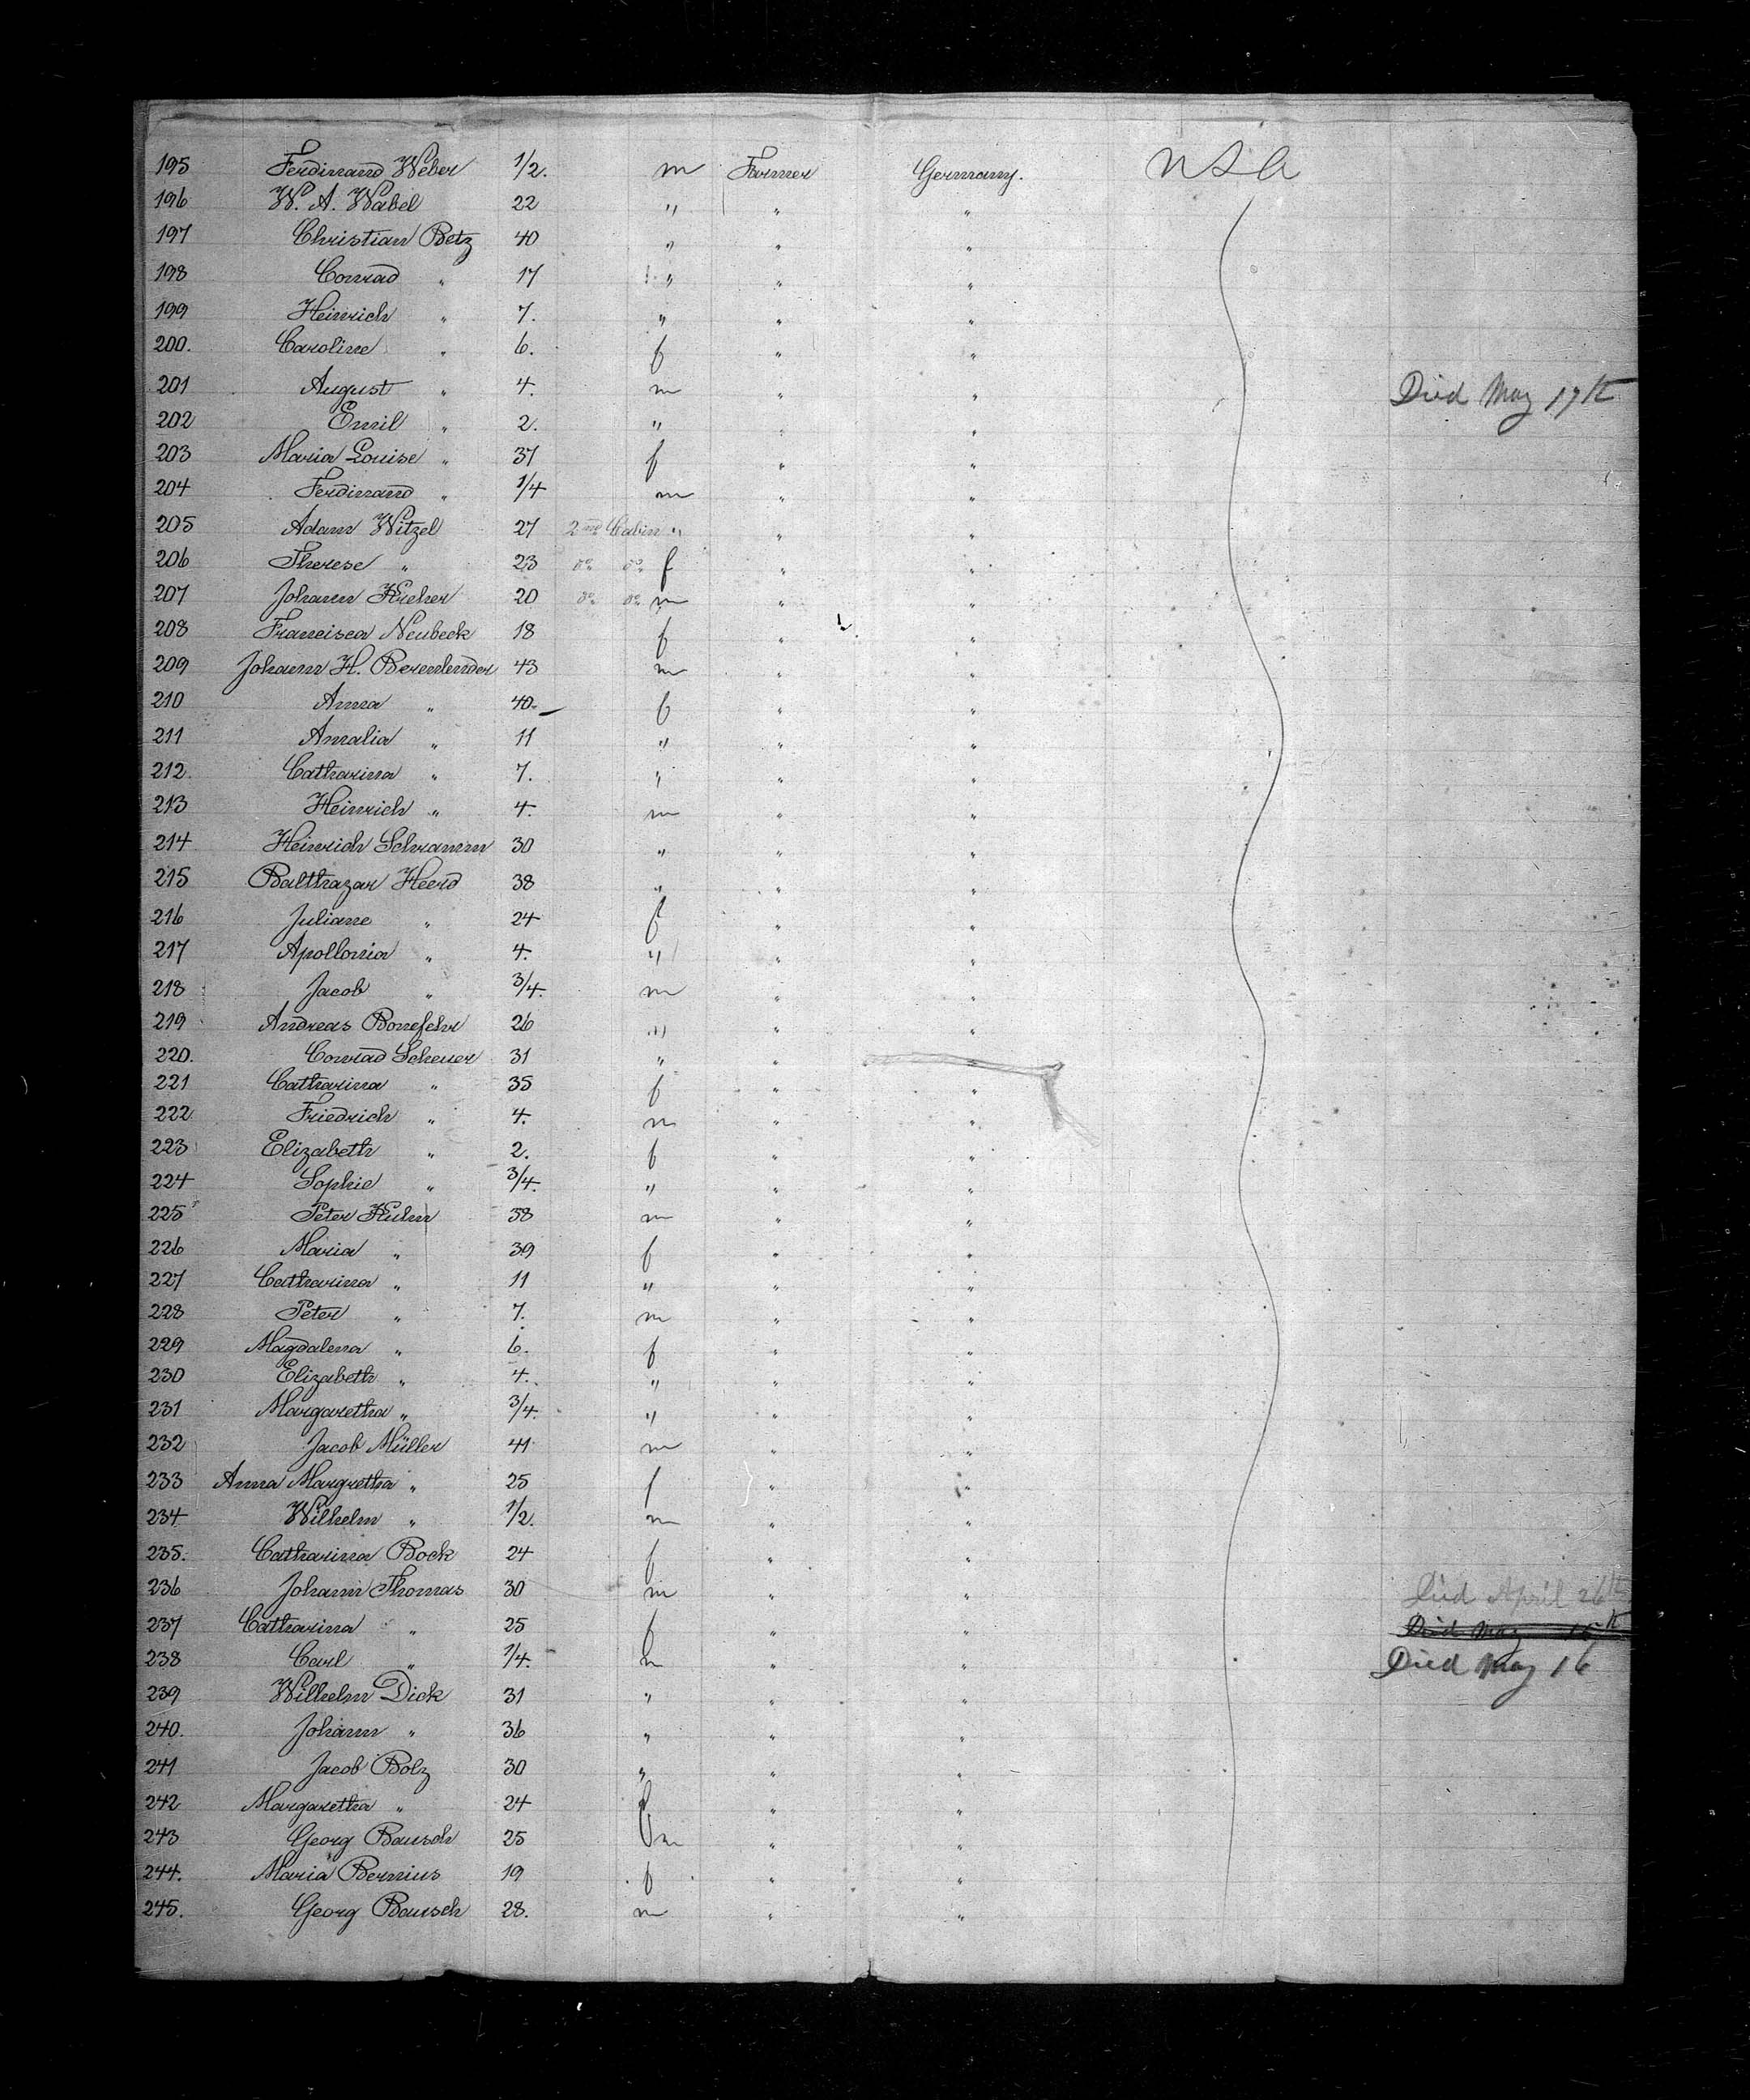 195 Ferdinand Weber 1/2. m Farmer Germany. U S A
196 W. A. Wabel 22 " " "
197 Christian Betz 40 " " "
198 Conrad " 17 " " "
199 Heinrich " 7. " " "
200. Caroline " 6. f " "
201 August " 4. m " " Died May 17th
202 Emil " 2. " " "
203 Maria Louise " 37 f " "
204 Ferdinand " 1/4 m " "
205 Adam Witzel 27 2nd Cabin " " "
206 Therese " 23 do do f " "
207 Johann 20 do do m " "
208 Francisca Neubeck 18 f " "
209 Johann H. 43 m " "
210 Anna " 40. f " "
211 Amalia " 11 " " "
212. Catharina " 7. " " "
213 Heinrich " 4. m " "
214 Heinrich Schramm 30 " " "
215 Balthazar Heerd 38 " " "
216 Juliane " 24 f " "
217 Apollonia " 4. " " "
218 Jacob " 3/4. m " "
219 Andreas Bonefehr 26 " " "
220. Conrad Scheuer 31 " " "
221 Catharina " 35 f " "
222. Friedrich " 4. m " "
223 Elizabeth " 2. f " "
224 Sophie " 3/4. " " "
225 Peter Kuhn 38 m " "
226 Maria " 39 f " "
227 Catharina " 11 " " "
228 Peter " 7. m " "
229 Magdalena " 6. f " "
230 Elizabeth " 4. " " "
231 Margaretha " 3/4. " " "
232 Jacob Müller 41 m " "
233 Anna Margretha " 25 f " "
234 Wilhelm " 1/2. m " "
235. Catharina Bock 24 f " "
236 Johann Thomas 30 m " " Died April 26th
237 Catharina " 25 f " " Died May 15th
238 Carl " 1/4. m " " Died May 16
239 Wilhelm Dick 31 " " "
240. Johann " 36 " " "
241 Jacob Bolz 30 " " "
242 Margaretha " 24 f " "
243 Georg Bausch 25 m " "
244. Maria Bernius 19 f " "
245. Georg Bausch 28. m " "